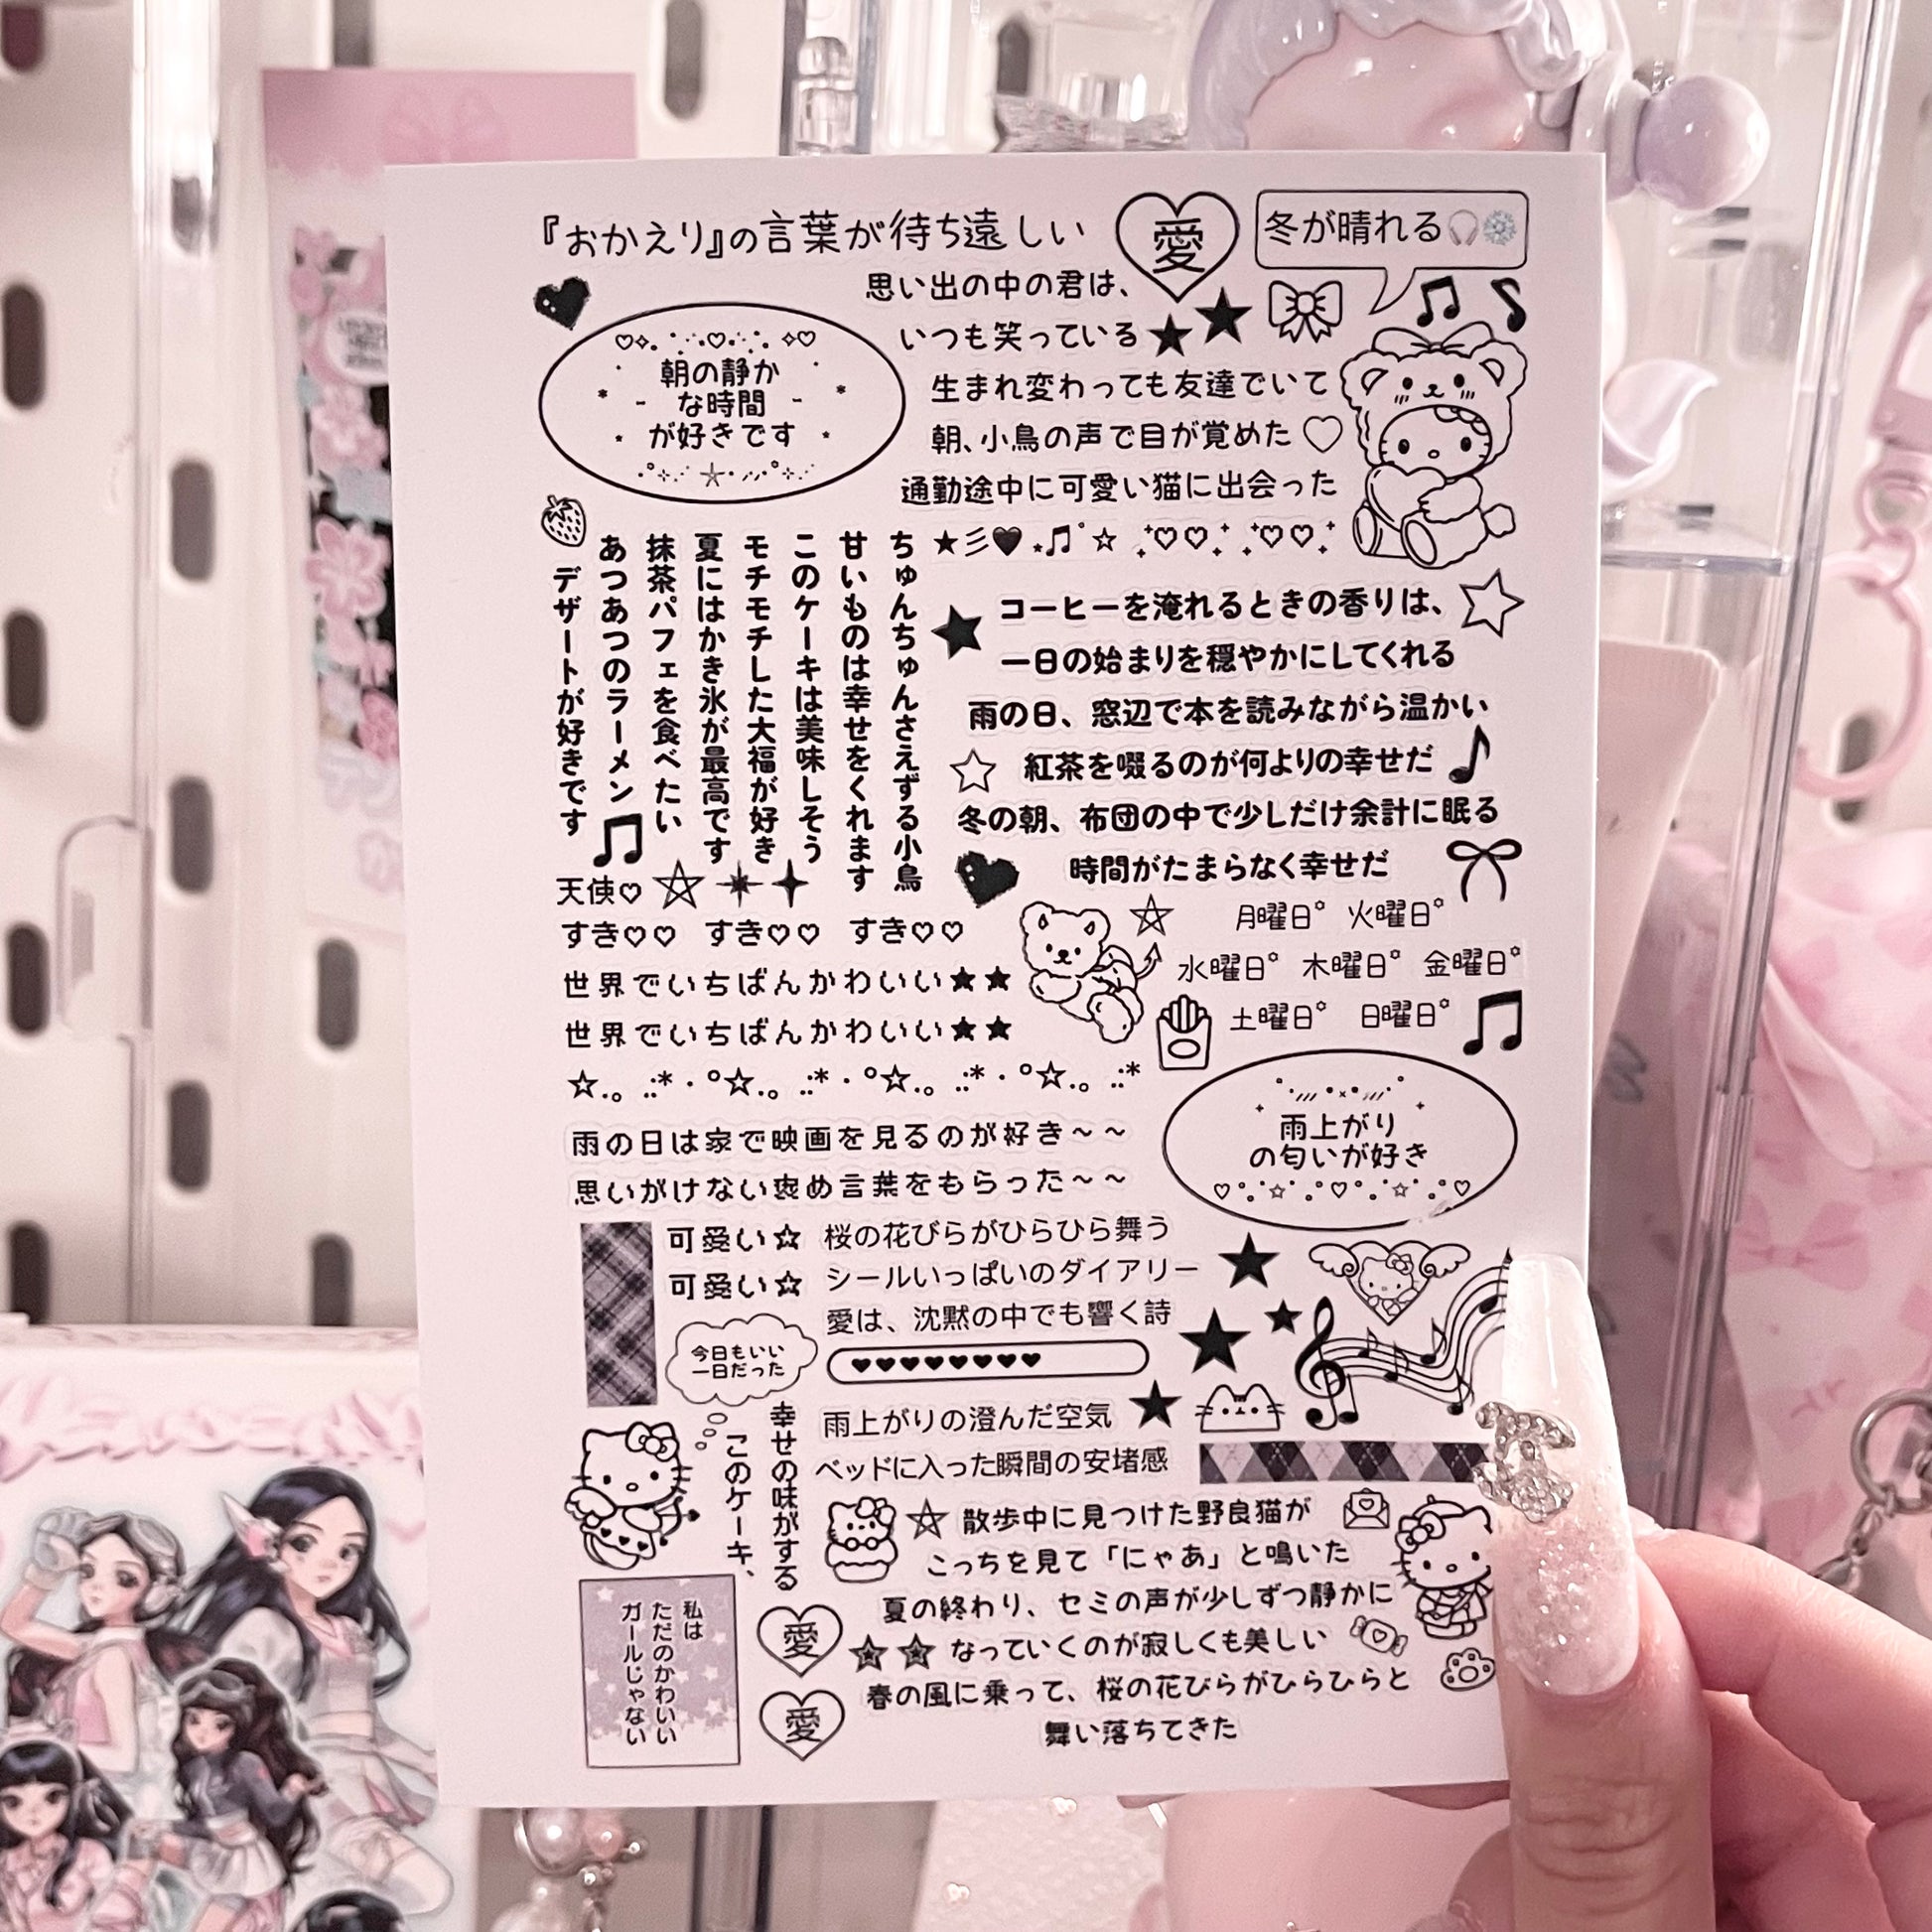 『おかえり』の言葉が待ち遠しい
愛
冬が晴れる
思い出の中の君は、
いつも笑っている
朝の静か
な時間
が好きです
生まれ変わっても友達でいて
朝、小鳥の声で目が覚めた
通勤途中に可愛い猫に出会った
ちゅんちゅんさえずる小鳥
甘いものは幸せをくれます
このケーキは美味しそう
モチモチした大福が好き
夏にはかき氷が最高です
抹茶パフェを食べたい
あつあつのラーメン
デザートが好きです
コーヒーを淹れるときの香りは、
一日の始まりを穏やかにしてくれる
雨の日、窓辺で本を読みながら温かい
紅茶を啜るのが何よりの幸せだ
冬の朝、布団の中で少しだけ余計に眠る
時間がたまらなく幸せだ
天使♡
すき♡♡ すき♡♡ すき♡♡
月曜日 火曜日
水曜日 木曜日 金曜日
土曜日 日曜日
世界でいちばんかわいい★★
世界でいちばんかわいい★★
雨の日は家で映画を見るのが好き~~
思いがけない褒め言葉をもらった~~
雨上がり
の匂いが好き
可愛い☆
可愛い☆
桜の花びらがひらひら舞う
シールいっぱいのダイアリー
愛は、沈黙の中でも響く詩
今日もいい
一日だった
雨上がりの澄んだ空気
ベッドに入った瞬間の安堵感
このケーキ、
幸せの味がする
散歩中に見つけた野良猫が
こっちを見て「にゃあ」と鳴いた
夏の終わり、セミの声が少しずつ静かに
なっていくのが寂しくも美しい
春の風に乗って、桜の花びらがひらひらと
舞い落ちてきた
私は
ただのかわいい
ガールじゃない
愛
愛